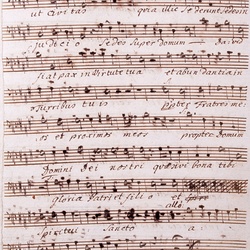 ut Civitas quia illic Sederunt Sedes in
judicio Sedes super Domum David
fiat pax in Virtute tua et abundantia in
turribus tuis Propter Fratres me
os et proximos meos propter Domum
Domini Dei nostri quæsivi bona tibi
gloria Patri et filio et
Spiritui Sancto a